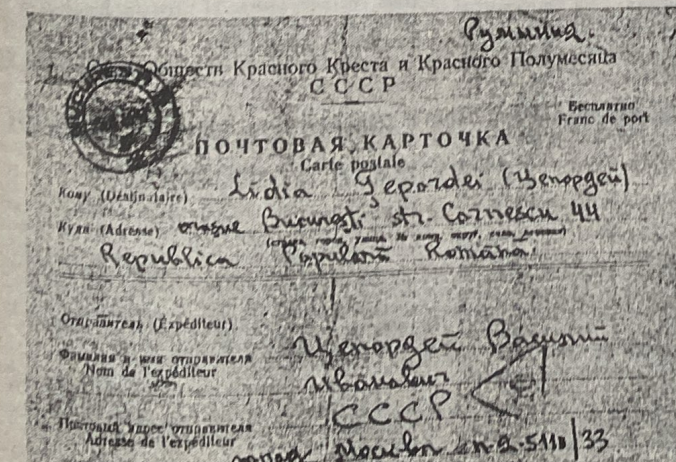 Румыния.
Обществ Красного Креста и Красного Полумесяца
СССР
Бесплатно
Franc de port
ПОЧТОВАЯ КАРТОЧКА
Carte postale
Кому (Destinataire) Lidia Țepordei (Цепордей)
Куда (Adresse) București str. Cornescu 44
Republica Populară Română
Отправитель (Expéditeur)
Фамилия и имя отправителя
Nom de l'expéditeur
Цепордей Василий
Иванович
СССР
Почтовый адрес отправителя
Adresse de l'expéditeur
Москва п-я-5110/33